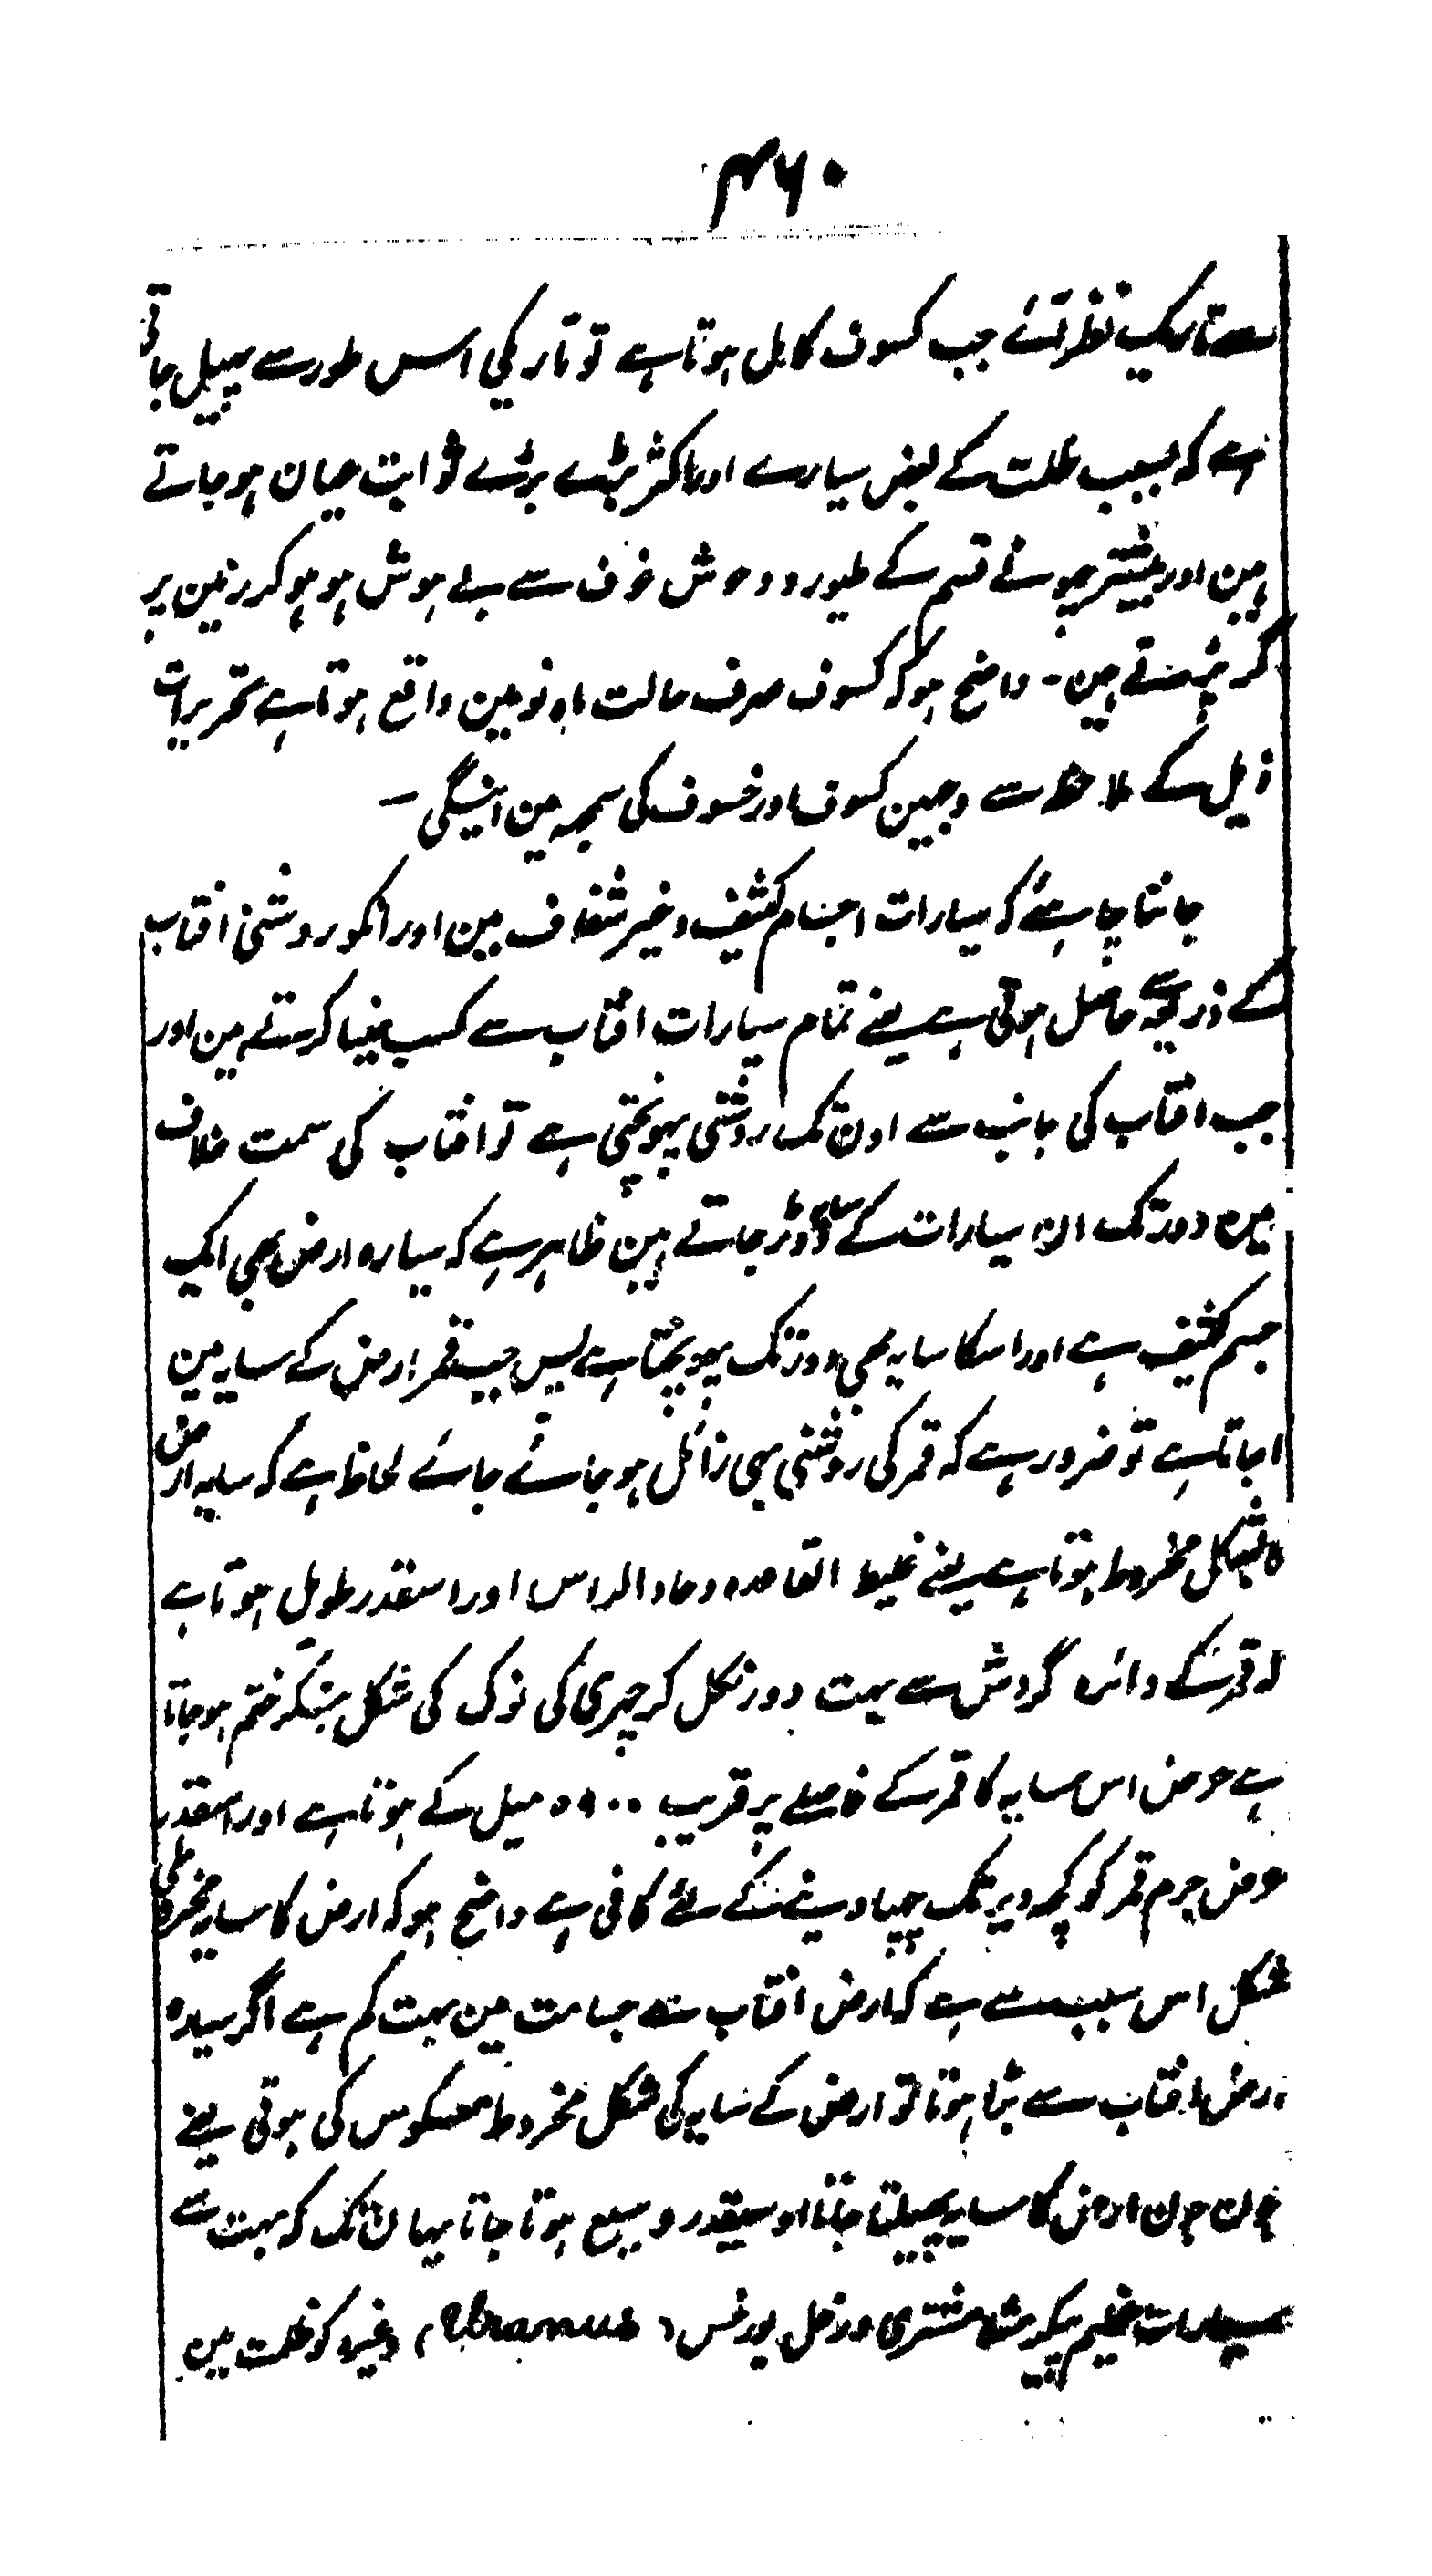 ۴۶۰
سے تاریک نظر آئے جب کسوف کامل ہوتا ہے تو تاریکی اسس طور سے پھیل جاتی
ہے کہ بسبب ظلمت کے بعض سیارے اور اکثر بڑے بڑے ثوابت عیان ہو جاتے
ہین اور بیشتر چھوٹے قسم کے طیور و وحوش خوف سے بے ہوش ہو ہو کر زمین پر
گر پڑتے ہین ۔ واضح ہو کہ کسوف صرف حالت ماہ نو مین واقع ہوتا ہے تحریرات
ذیل کے ملاحظہ سے وجہین کسوف اور خسوف کی سمجہ مین آئینگی ۔
جاننا چاہئے کہ سیارات اجسام کثیف و غیر شفاف ہین اور انکو روشنی افتاب
کے ذریعہ سے حاصل ہوتی ہے یعنے تمام سیارات افتاب سے کسب ضیا کرتے ہین اور
جب افتاب کی جانب سے اون تک روشنی پہونچتی ہے تو افتاب کی سمت خلاف
مین دور تک ان سیارات کے سایے دوڑ جاتے ہین ظاہر ہے کہ سیارہ ارض بھی ایک
جسم کثیف ہے اور اسکا سایہ بھی دور تک پہونچتا ہے پس جب قمر ارض کے سایہ مین
اجاتا ہے تو ضرور ہے کہ قمر کی روشنی بھی زائل ہو جائے جائے لحاظ ہے کہ سایہ ارض
بشکل مخروط ہوتا ہے یعنے غلیظ القاعدہ و حاد الراس اور اسقدر طویل ہوتا ہے
کہ قمر کے دائرہ گردش سے بہت دور نکل کر چھری کی نوک کی شکل بنکر ختم ہو جاتا
ہے عرض اس سایہ کا قمر کے فاصلے پر قریب ۵۹۰۰ میل کے ہوتا ہے اور اسقدر
عرض جرم قمر کو کچہ دیر تک چھپا دینے کے لئے کافی ہے واضح ہو کہ ارض کا سایہ مخروطی
شکل اس سبب سے ہے کہ ارض افتاب سے جسامت مین بہت کم ہے اگر سیارہ
ارض افتاب سے بڑا ہوتا تو ارض کے سایہ کی شکل مخروط معکوس کی ہوتی یعنے
جون جون ارض کا سایہ پھیلتا جاتا اوسیقدر وسیع ہوتا جاتا یہان تک کہ بہت سے
سیارات عظیم پیکر مثل مشتری و زحل یورنس (Uranus) وغیرہ کو ظلمت مین